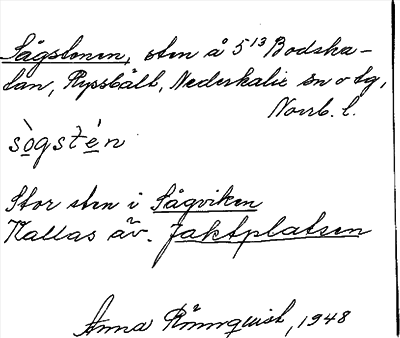 Sågstenen, sten å 5¹³ Bodska-
tan, Ryssbält, Nederkalix sn o tg,
Norrb. l.
sògstén
Stor sten i Sågviken
Kallas äv. Jaktplatsen
Anna Rönnquist, 1948